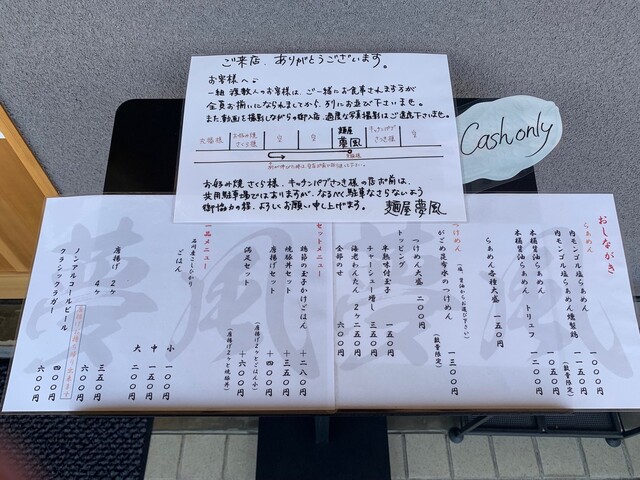 ご来店、ありがとうございます。
お客様へ
一組 複数人のお客様は、ご一緒にお食事されます方が
全員お揃いになられましてから、列にお並び下さいませ。
また動画を撮影しながらの御入店、過度な写真撮影はご遠慮下さいませ。
お好み焼
さくら様
空
空
麺屋
夢風
キッチンパグ
さつき様
空
お好み焼 さくら様、キッチンパグさつき様の店お前は、
共用駐車場ではありますが、なるべく駐車なさらないよう
御協力の程、よろしくお願い申し上げます。
麺屋夢風
Cash only
おしながき
らぁめん
内モンゴル塩らぁめん 一〇〇〇
内モンゴル塩らぁめん 燻製鶏
(数量限定)
木桶醤油らぁめん
木桶醤油らぁめん トリュフ
らぁめん各種大盛 一五〇円
つけめん
がごめ昆布水のつけめん
(数量限定)
一三〇〇円
つけめん大盛 二〇〇円
トッピング
半熟味付玉子 一五〇円
チャーシュー増し 三五〇円
海老わんたん 2ケ 二五〇円
全部のせ 六〇〇円
セットメニュー
鶏節の玉子かけごはん +二八〇円
焼豚丼セット +三五〇円
唐揚げセット +四〇〇円
(唐揚げ2ケとごはん小)
満足セット +六〇〇円
(唐揚げ2ケと焼豚丼)
一品メニュー
石川産こしひかり
ごはん
小 一〇〇円
中 一五〇円
大 二〇〇円
唐揚げ 2ケ
4ケ 三五〇円
ノンアルコールビール 四〇〇円
クラシックラガー 六〇〇円
夢風
夢風